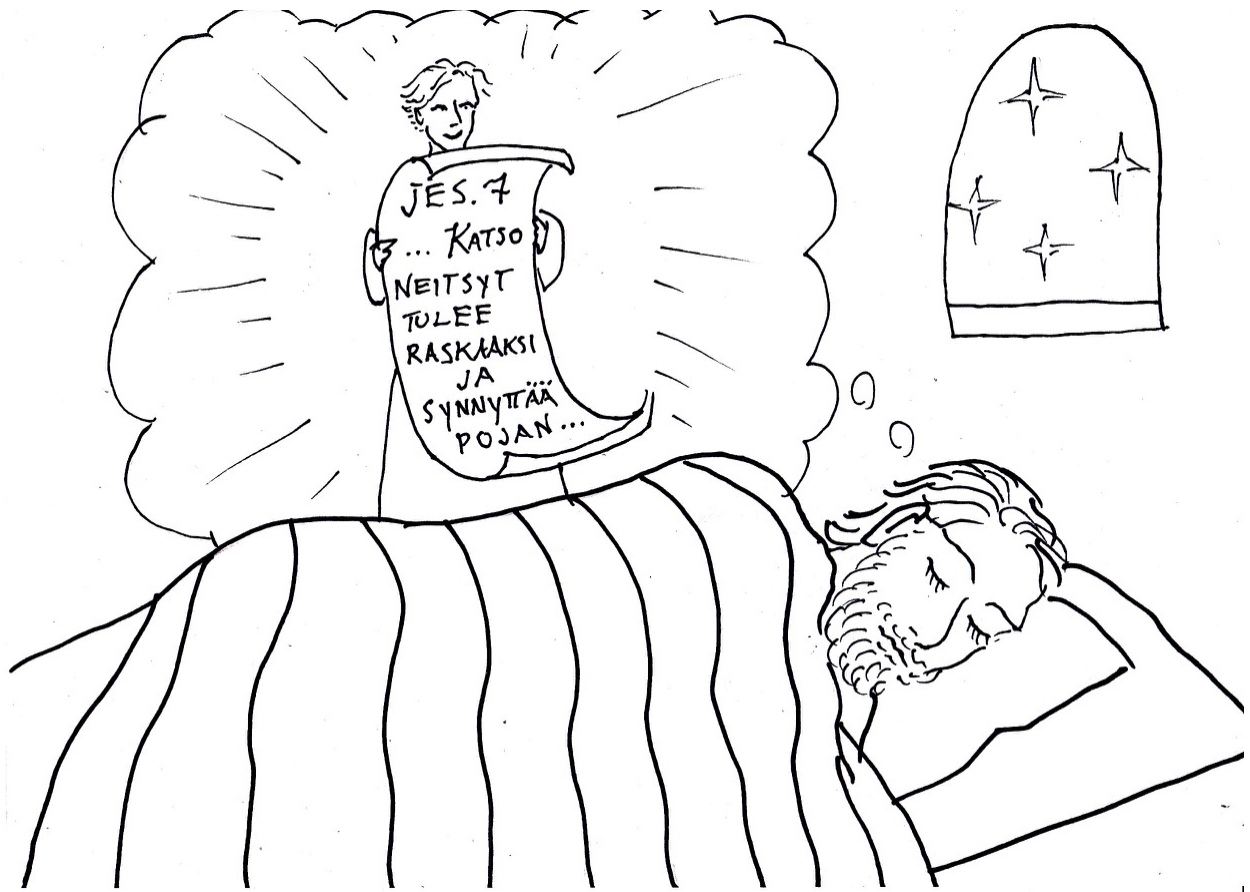 JES. 7
... KATSO
NEITSYT
TULEE
RASKAAKSI
JA
SYNNYTTÄÄ
POJAN...